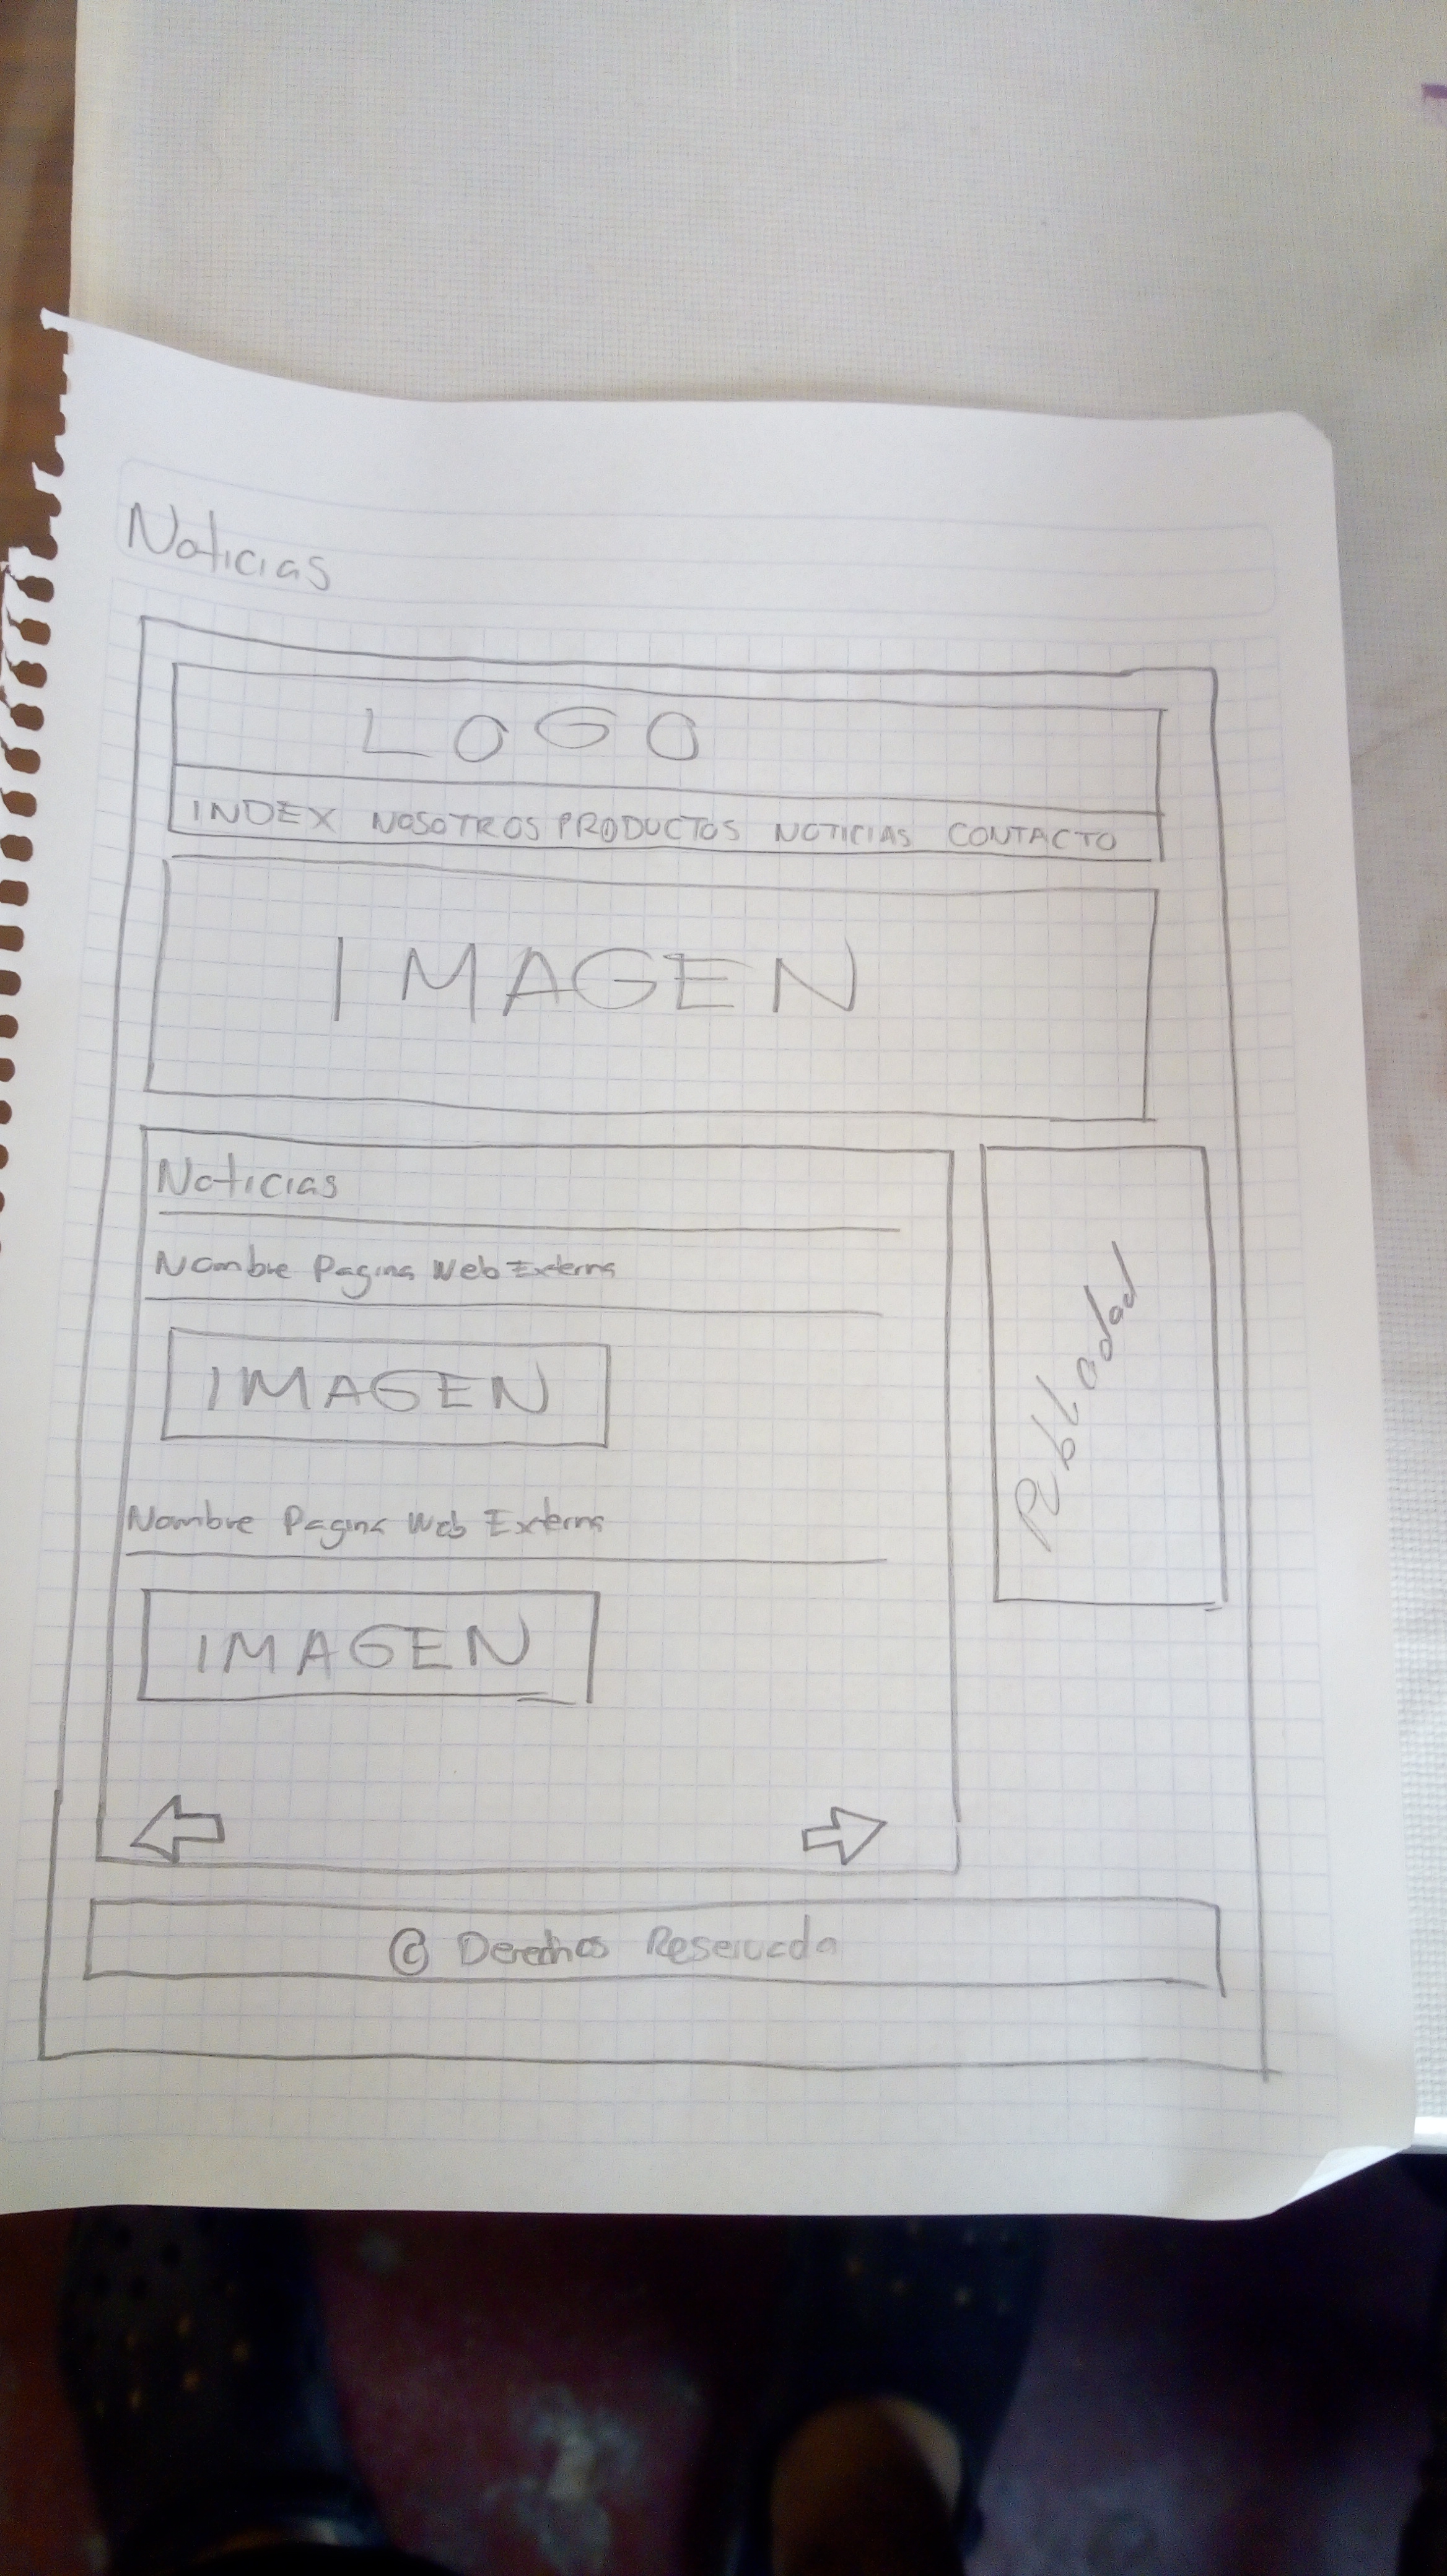 Noticias
LOGO
INDEX NOSOTROS PRODUCTOS NOTICIAS CONTACTO
IMAGEN
Noticias
Nombre Pagina Web Externa
IMAGEN
Nombre Pagina Web Externa
IMAGEN
Publiadad
© Derechos Reservada